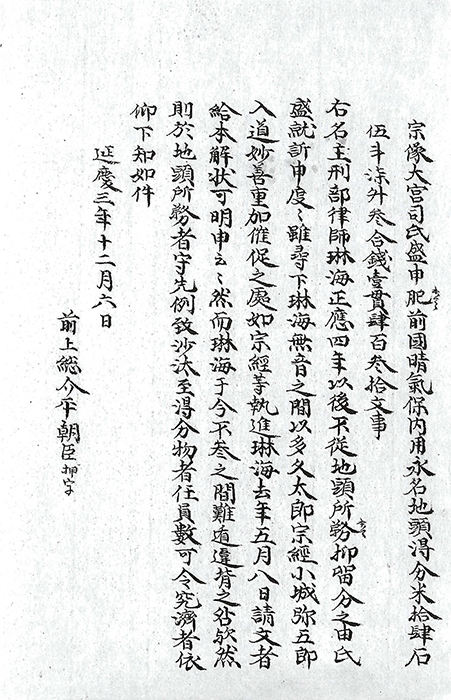 宗像大宮司氏盛申肥前國晴氣保内用永名地頭得分米拾肆石
伍斗柒升叁合錢壹貫肆百叁拾文事
右名主刑部律師琳海正應四年以後不従地頭所務抑留分之由氏
盛就訴申度〻雖尋下琳海無音之間以多久太郎宗經小城弥五郎
入道妙善重加催促之處如宗經等執進琳海去年五月八日請文者
給本解状可明申云〻然而琳海于今不叁之間難遁違背之咎欤然
則於地頭所務者守先例致沙汰至得分物者任員數可令究濟者依
仰下知如件
延慶三年十二月六日
前上総介平朝臣押字